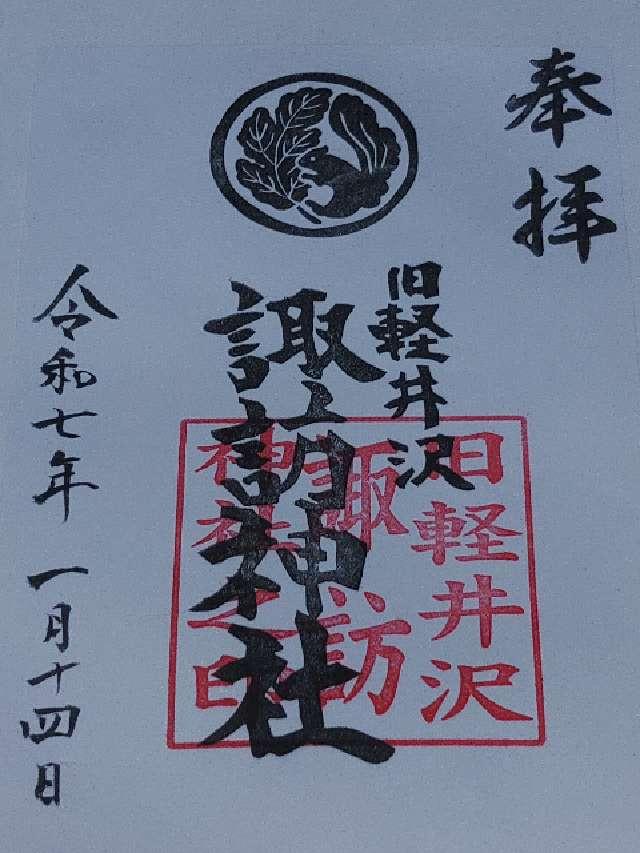 奉拝
旧軽井沢
諏訪神社
旧軽井沢
諏訪
神社之印
令和七年 一月十四日